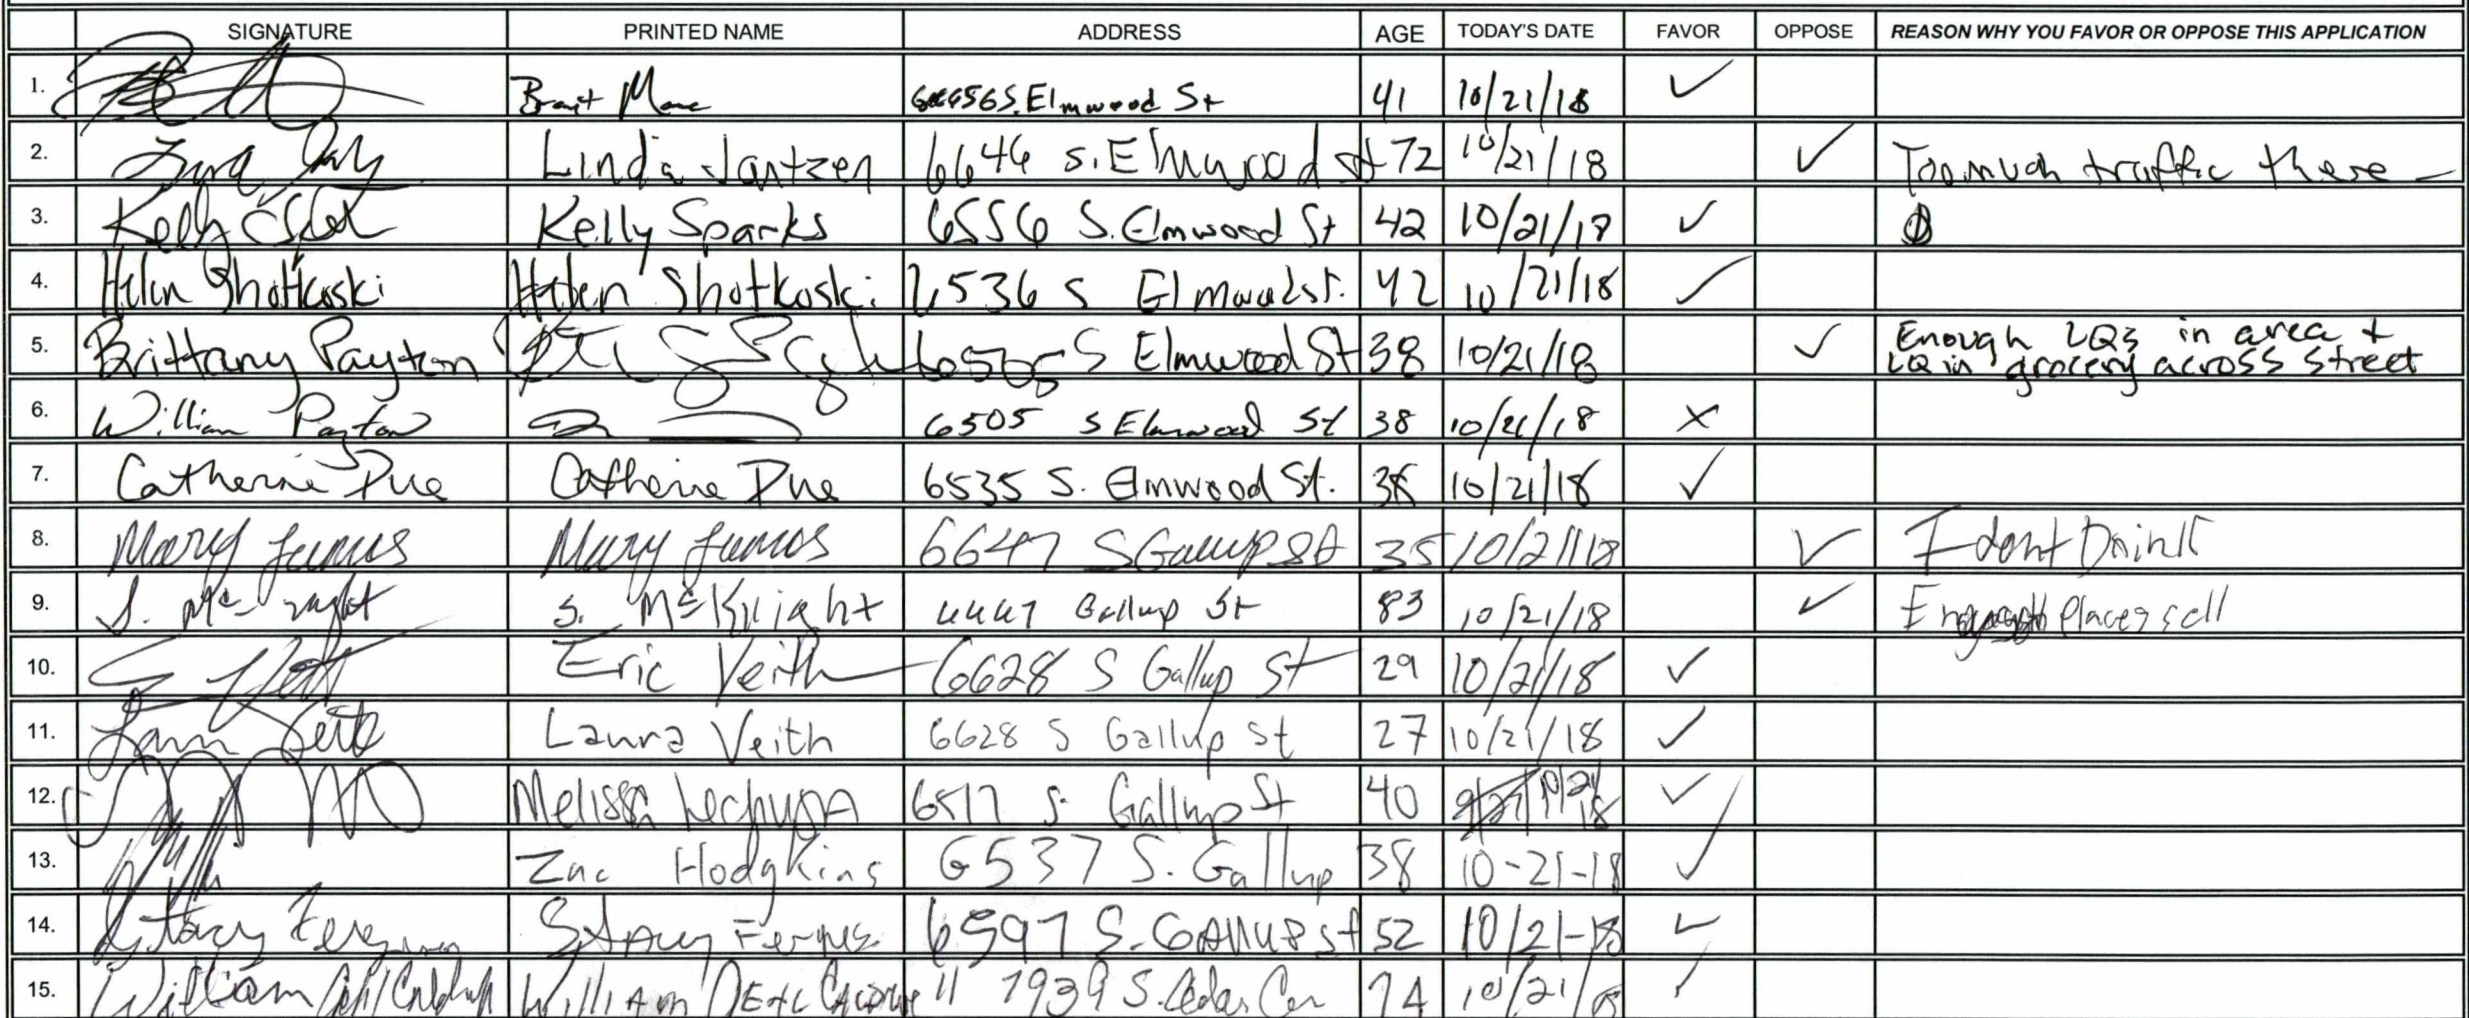 SIGNATURE PRINTED NAME ADDRESS AGE TODAY'S DATE FAVOR OPPOSE REASON WHY YOU FAVOR OR OPPOSE THIS APPLICATION
1. S. Elmwood St 41 10/21/18 ✓
2. Linda Jantzen 6646 S. Elmwood St 72 10/21/18 ✓ Too much traffic there –
3. Kelly Sparks 6556 S. Elmwood St 42 10/21/18 ✓
4. Helen Shotkoski Helen Shotkoski 6536 S Elmwood St. 42 10/21/18 ✓
5. Brittany Payton 6505 S Elmwood St 38 10/21/18 ✓ Enough LQs in area +
LQ in grocery across street
6. William Payton 6505 S Elmwood St 38 10/21/18 X
7. Catherine Due Catherine Due 6535 S. Elmwood St. 10/21/18 ✓
8. Mary Mary 6647 S Gallup St 35 10/21/18 ✓ I dont Drink
9. S. McKnight S. McKnight Gallup St 83 10/21/18 ✓ places sell
10. Eric Veith 6628 S Gallup St 29 10/21/18 ✓
11. Laura Veith 6628 S Gallup St 27 10/21/18 ✓
12. Melissa Lechuga 6517 S. Gallup St 40 10/21/18 ✓
13. Zac Hodgkins 6537 S. Gallup 38 10-21-18 ✓
14. Stacy Stacy 6597 S. Gallup St 52 10/21-18 ✓
15. William William 7939 S. Cedar 74 10/21/18 ✓